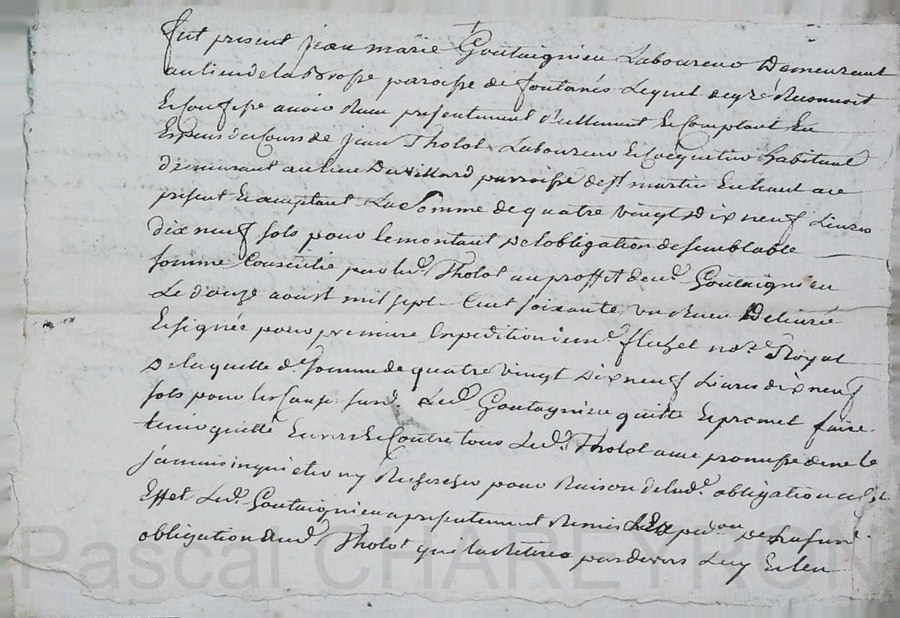 fut present jean marie Goutaignieu Laboureur Demeurant
au lieu de la brosse parroisse de fontanés Lequel de gré Reconnoit
Et Confesse avoir Receu presentement reellement Et Comptant En
Especes du Cours de Jean Tholot Laboureur Et Coequetier habitant
demeurant au lieu Du villard parroisse de st martin En haut ace
present Et acceptant La Somme de quatre vingt Dix neuf Livres
dix neuf sols pour le montant De lobligation de semblable
somme Consentie par led. Tholot au proffit dud. Goutaignieu
Le douze aoust mil sept Cent soixante un Receue Delivrée
Et signée pour premiere Expedition me. flechet nore. Royal
De laquelle de. somme de quatre vingt Dix neuf Livres dix neuf
sols pour les Causes susd. Led. Goutagnieu quitte Et promet faire
tenir quitte Envers Et Contre tous Led. Tholot avec promesse de ne le
jamais inquieter ny Rechercher pour Raison de lad. obligation a cet
Effet Led. Goutaignieu a presentement Remis LExpedon. De la susd.
obligation aud. Tholot qui la Retirée pardevers Luy Et Len
Pascal CHAREYRON